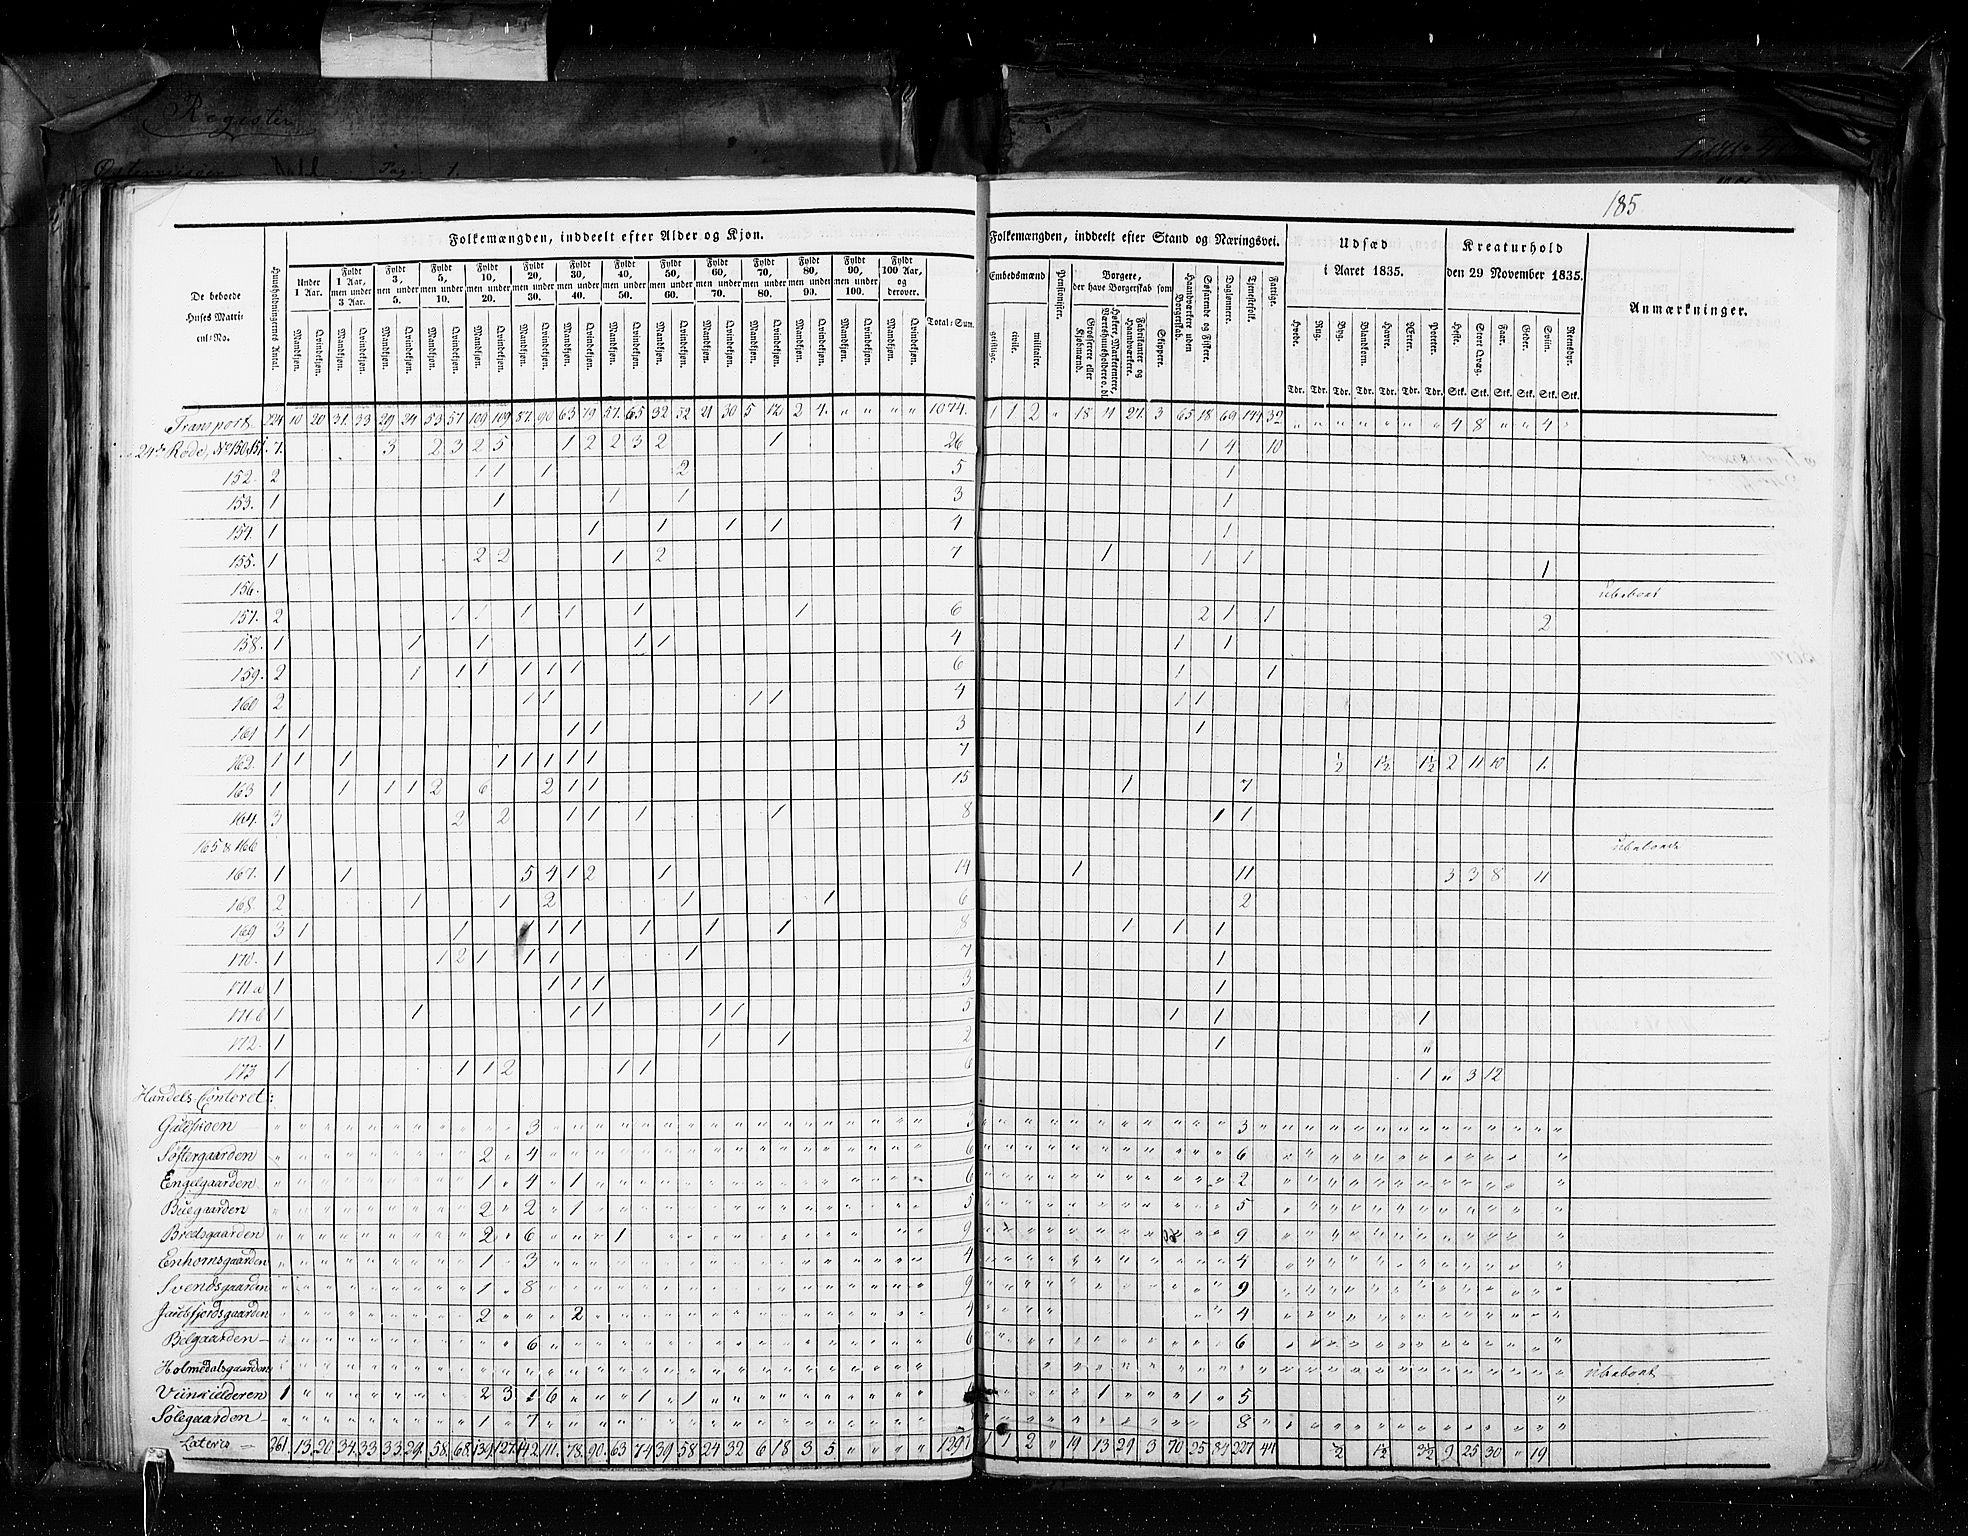 Register
185
Folkemængden, inddeelt efter Alder og Kjøn.
Folkemængden, inddeelt efter Stand og Næringsvei.
Udsæd
i Aaret 1835.
Kreaturhold
den 29 November 1835.
Anmærkninger.
De beboede Huses Matricul-No.
Huusholdningernes Antal.
Under 1 Aar.
Fyldt 1 Aar, men under 3 Aar.
Fyldt 3, men under 5.
Fyldt 5, men under 10.
Fyldt 10, men under 20.
Fyldt 20, men under 30.
Fyldt 30, men under 40.
Fyldt 40, men under 50.
Fyldt 50, men under 60.
Fyldt 60, men under 70.
Fyldt 70, men under 80.
Fyldt 80, men under 90.
Fyldt 90, men under 100.
Fyldt 100 Aar, og derover.
Mandkjøn. Qvindekjøn.
Total-Sum.
Embedsmænd
geistlige. civile. militaire.
Pensionister.
Borgere, der have Borgerskab som
Grosserere eller Kjøbmænd.
Høkere, Marketentere, Værtshuusholdere o. dl.
Fabrikanter og Haandværkere.
Skippere.
Haandværkere uden Borgerskab.
Søfarende og Fiskere.
Daglønnere.
Tjenestefolk.
Fattige.
Hvede. Rug. Byg. Blandkorn. Havre. Erter. Poteter.
Tdr. Tdr. Tdr. Tdr. Tdr. Tdr. Tdr.
Heste. Stort Qvæg. Faar. Geder. Sviin. Reensdyr.
Stk. Stk. Stk. Stk. Stk. Stk.
Transport 224 10 20 31 33 29 24 53 57 109 109 57 90 63 79 57 65 32 52 21 30 5 12 2 4 " " " " 1074 1 1 2 " 18 11 27 3 65 18 69 144 32 " " " " " " " 4 8 " " 4 "
24de Rode, No 150 & 151 7 3 2 3 2 5 1 2 2 3 2 1 26 1 4 10
152. 2 1 1 1 2 5 1
153. 1 1 1 1 3 1
154. 1 1 1 1 1 4 1
155. 1 2 2 1 2 7 1 1 1 1
156. Ubeboet
157. 2 1 1 1 1 1 1 6 2 1 1 2
158. 1 1 1 1 1 4 1 1
159. 2 1 1 1 1 1 1 6 1 1
160 2 1 1 1 1 4 1 1
161 1 1 1 1 3 1
162. 1 1 1 1 1 1 1 1 7 ½ 1½ 1½ 2 11 10 1
163 1 1 1 1 2 6 2 1 1 15 1 7
164. 3 2 2 1 1 1 1 8 1 1
165 & 166 Ubeboede
167. 1 1 5 4 1 2 1 14 1 11 3 3 8 11
168. 2 1 1 2 1 1 6 2
169 3 1 1 1 1 1 1 1 1 8 1 1 1
170. 1 1 2 1 1 1 1 7 1
171 a 1 1 1 1 3 1
171 b 1 1 1 1 1 1 5 1 1 1
172. 1 1 1 2 1 "
173 1 1 1 2 1 1 6 1 " 3 12
Handels-Contoret:
Guldskoen 3 3 3
Søstergaarden 2 4 6 6
Engelgaarden 1 4 1 6 2
Buegaarden 2 2 1 5 5
Bredsgaarden 2 6 1 9 9
Enhornsgaarden 1 3 4 4
Svendsgaarden 1 8 9 9
Jacobsfjordsgaarden 2 2 4 4
Belgaarden 6 6 6
Holmedalsgaarden Ubeboet
Viinkielderen 1 2 3 1 6 1 1 1 1 5
Solegaarden 1 7 8
Lateris 261 13 20 34 33 33 29 58 68 139 127 142 111 78 90 63 74 39 58 24 32 6 18 3 5 " " " " 1 1 2 " 19 13 29 3 70 25 84 227 44 ½ 1½ 3½ 9 25 30 " 19